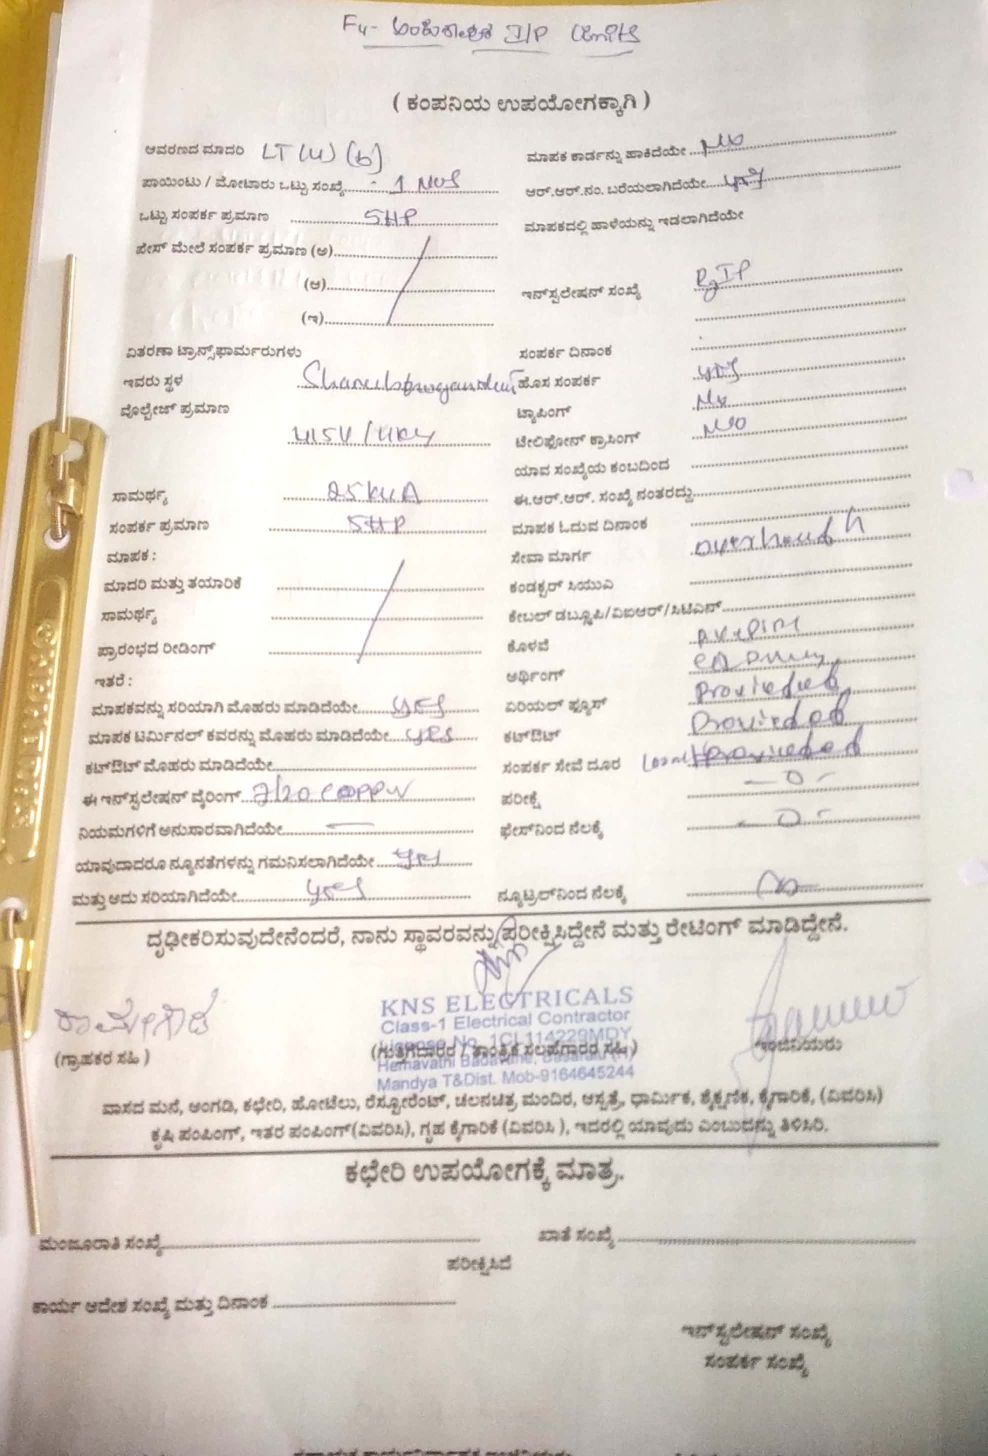 F4- I/P
( ಕಂಪನಿಯ ಉಪಯೋಗಕ್ಕಾಗಿ )
ಆವರಣದ ಮಾದರಿ LT (4) (b) ಮಾಪಕ ಕಾರ್ಡನ್ನು ಹಾಕಿದೆಯೇ No
ಪಾಯಿಂಟು / ಮೋಟಾರು ಒಟ್ಟು ಸಂಖ್ಯೆ 1 NoS ಆರ್.ಆರ್.ನಂ. ಬರೆಯಲಾಗಿದೆಯೇ yes
ಒಟ್ಟು ಸಂಪರ್ಕ ಪ್ರಮಾಣ 5HP ಮಾಪಕದಲ್ಲಿ ಹಾಳೆಯನ್ನು ಇಡಲಾಗಿದೆಯೇ
ಪೇಸ್ ಮೇಲೆ ಸಂಪರ್ಕ ಪ್ರಮಾಣ (ಅ)
(ಆ) ಇನ್‌ಸ್ಟಲೇಷನ್ ಸಂಖ್ಯೆ
(ಇ)
ವಿತರಣಾ ಟ್ರಾನ್ಸ್‌ಫಾರ್ಮರುಗಳು ಸಂಪರ್ಕ ದಿನಾಂಕ
ಇವರು ಸ್ಥಳ ಹೊಸ ಸಂಪರ್ಕ yes
ವೊಲ್ಟೇಜ್ ಪ್ರಮಾಣ ಟ್ಯಾಪಿಂಗ್ No
415V / 11KV ಟೇಲಿಫೋನ್ ಕ್ರಾಸಿಂಗ್ No
ಯಾವ ಸಂಖ್ಯೆಯ ಕಂಬದಿಂದ
ಸಾಮರ್ಥ್ಯ 25KVA ಈ.ಆರ್.ಆರ್. ಸಂಖ್ಯೆ ನಂತರದ್ದು
ಸಂಪರ್ಕ ಪ್ರಮಾಣ 5HP ಮಾಪಕ ಓದುವ ದಿನಾಂಕ
ಮಾಪಕ : ಸೇವಾ ಮಾರ್ಗ overhead
ಮಾದರಿ ಮತ್ತು ತಯಾರಿಕೆ ಕಂಡಕ್ಟರ್ ಸಿಯುವಿ
ಸಾಮರ್ಥ್ಯ ಕೇಬಲ್ ಡಬ್ಲೂಪಿ/ವಿಐಆರ್/ಸಿಟಿಎಸ್
ಪ್ರಾರಂಭದ ರೀಡಿಂಗ್ ಕೊಳವೆ
ಇತರೆ : ಅರ್ಥಿಂಗ್
ಮಾಪಕವನ್ನು ಸರಿಯಾಗಿ ಮೊಹರು ಮಾಡಿದೆಯೇ yes ಏರಿಯಲ್ ಫ್ಯೂಸ್ Provieded
ಮಾಪಕ ಟರ್ಮಿನಲ್ ಕವರನ್ನು ಮೊಹರು ಮಾಡಿದೆಯೇ yes ಕಟ್‌ಔಟ್ Provieded
ಕಟ್‌ಔಟ್ ಮೊಹರು ಮಾಡಿದೆಯೇ ಸಂಪರ್ಕ ಸೇವೆ ದೂರ Provieded
ಈ ಇನ್‌ಸ್ಟಲೇಷನ್ ವೈರಿಂಗ್ 7/20 ಪರೀಕ್ಷೆ — 0 -
ನಿಯಮಗಳಿಗೆ ಅನುಸಾರವಾಗಿದೆಯೇ — ಫೇಸ್‌ನಿಂದ ನೆಲಕ್ಕೆ — 0 -
ಯಾವುದಾದರೂ ನ್ಯೂನತೆಗಳನ್ನು ಗಮನಿಸಲಾಗಿದೆಯೇ yes
ಮತ್ತು ಅದು ಸರಿಯಾಗಿದೆಯೇ yes ನ್ಯೂಟ್ರಲ್‌ನಿಂದ ನೆಲಕ್ಕೆ
ದೃಢೀಕರಿಸುವುದೇನೆಂದರೆ, ನಾನು ಸ್ಥಾವರವನ್ನು ಪರೀಕ್ಷಿಸಿದ್ದೇನೆ ಮತ್ತು ರೇಟಿಂಗ್ ಮಾಡಿದ್ದೇನೆ.
KNS ELECTRICALS
Class-1 Electrical Contractor
ರಾಮೇಗೌಡ License No. 1CL114229MDY
(ಗ್ರಾಹಕರ ಸಹಿ ) (ಗುತ್ತಿಗೆದಾರರ / ತಾಂತ್ರಿಕ ಸಲಹೆಗಾರರ ಸಹಿ) ಇಂಜಿನಿಯರು
Hemavathi Badavane,
Mandya T&Dist. Mob-9164645244
ವಾಸದ ಮನೆ, ಅಂಗಡಿ, ಕಛೇರಿ, ಹೋಟೆಲು, ರೆಸ್ಟೋರೆಂಟ್, ಚಲನಚಿತ್ರ ಮಂದಿರ, ಆಸ್ಪತ್ರೆ, ಧಾರ್ಮಿಕ, ಶೈಕ್ಷಣಿಕ, ಕೈಗಾರಿಕೆ, (ವಿವರಿಸಿ)
ಕೃಷಿ ಪಂಪಿಂಗ್, ಇತರ ಪಂಪಿಂಗ್ (ವಿವರಿಸಿ), ಗೃಹ ಕೈಗಾರಿಕೆ (ವಿವರಿಸಿ ), ಇದರಲ್ಲಿ ಯಾವುದು ಎಂಬುದನ್ನು ತಿಳಿಸಿರಿ.
ಕಛೇರಿ ಉಪಯೋಗಕ್ಕೆ ಮಾತ್ರ.
ಮಂಜೂರಾತಿ ಸಂಖ್ಯೆ ಖಾತೆ ಸಂಖ್ಯೆ
ಪರೀಕ್ಷಿಸಿದೆ
ಕಾರ್ಯ ಆದೇಶ ಸಂಖ್ಯೆ ಮತ್ತು ದಿನಾಂಕ
ಇನ್‌ಸ್ಟಲೇಷನ್ ಸಂಖ್ಯೆ
ಸಂಪರ್ಕ ಸಂಖ್ಯೆ